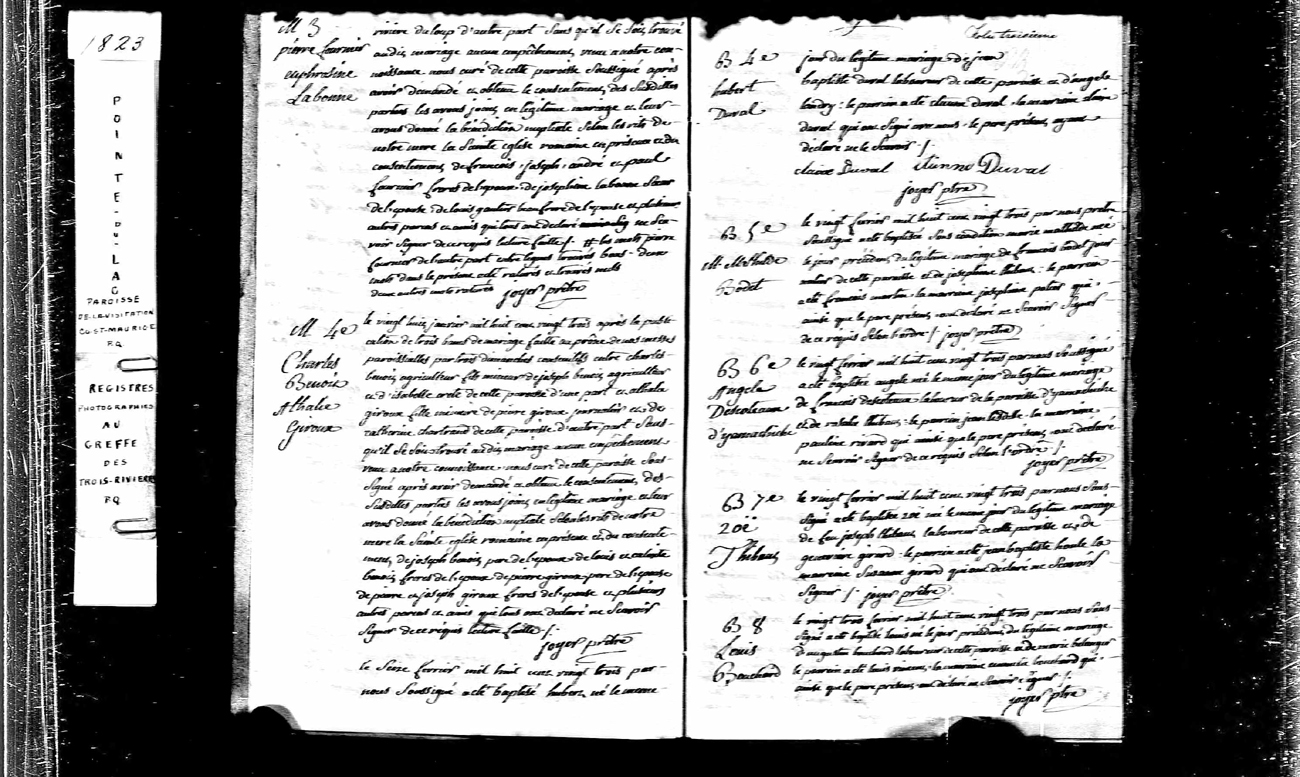 1823
POINTE-DU-LAC
PAROISSE
DE-LA-VISITATION
CG-ST-MAURICE
P.Q.
REGISTRES
PHOTOGRAPHIES
AU
GREFFE
DES
TROIS-RIVIERES
P.Q.
M 3
pierre fournier
euphrosine
Labonne
riviere du loup d'autre part sans qu'il se soit trouvé
au dit mariage aucun empêchement, venu a notre con-
noissance nous curé de cette paroisse soussigné après
avoir demandé et obtenu le consentement, des susdittes
parties les avons joint en legitime mariage et leur
avons donné la bénédiction nuptiale selon les rits de
notre mere la Sainte eglise romaine en présence et du
consentement, de francois, joseph, andré et paul
fournier freres de l'epoux, de josephine labonne Sœur
de l'epouse, de louis gautier beaufrere de l'epouse et plusieurs
autres parens et amis qui tous ont declaré ne Sca-
voir Signer de ce requis lecture faitte /. # les mots pierre
fournier de l'autre part entre lignes trouvés bons - deux
mots dans le présent acte raturés et trouvés nuls
deux autres mots raturés joyer prêtre
M 4e
Charles
Benoit
Athalie
Giroux
le vingt huit janvier mil huit cent vingt trois après la publi-
cation de trois bans de mariage faitte au prône de nos messes
paroissialles par trois dimanches consecutifs entre charles
benoit, agriculteur fils mineur de joseph benoit, agriculteur
et d'isabelle de cette paroisse d'une part et athalie
giroux fille mineure de pierre giroux journalier et de
catherine chartrand de cette paroisse d'autre part Sans
qu'il se soit trouvé au dit, mariage aucun empêchement
venu a notre connoissance nous curé de cette paroisse Sous-
Signé après avoir demandé et obtenu le consentement, des
Susdittes parties les avons joint, en legitime mariage et leur
avons donné la bénédiction nuptiale selon les rits de notre
mere la Sainte eglise romaine en présence et du consente-
ment, de joseph benoit, pere de l'epoux de louis et
benoit, freres de l'epoux de pierre giroux pere de l'epouse
de pierre et joseph giroux freres de l'epouse et plusieurs
autres parens et amis qui tous ont declaré ne Scavoir
Signer de ce requis lecture faitte /.
joyer prêtre
le Seize fevrier mil huit cent vingt trois par
nous Soussigné a été baptisé hubert, né le meme
folio troisieme
B 4e
hubert
Duval
jour du legitime mariage de jean
baptiste duval laboureur de cette paroisse et d'angele
landry : le parrein a été etienne duval : la marraine claire
duval qui ont Signé avec nous : le pere présent, ayant
declaré ne le Scavoir /.
claire Duval etienne Duval
joyer ptre
B 5e
M. Mathilde
Bodet
le vingt fevrier mil huit cent vingt trois par nous prêtre
Soussigné a été baptisée Sous condition marie mathilde née
le jour précédent, du legitime mariage de francois bodet jour
nalier de cette paroisse et de josephine thibaut : le parrein
a été francois : la marraine josephine qui,
ainsi que le pere présent, ont declaré ne Scavoir Signer
de ce requis Selon l'ordre /. joyer prêtre
B 6e
Angele
Descoteaux
d'yamachiche
le vingt fevrier mil huit cent vingt trois par nous Soussigné
a été baptisée angele née le meme jour du legitime mariage
de francois descoteaux laboureur de la paroisse d'yamachiche
et de natalie thibaut : le parrein jean : la marraine
pauline rivard qui ainsi que le pere présent, ont declaré
ne Scavoir Signer de ce requis Selon l'ordre /.
joyer prêtre
B 7e
zoé
Thibaut
le vingt fevrier mil huit cent vingt trois par nous Sous-
Signé a été baptisée zoé née le meme jour du legitime mariage
de feu joseph thibaut laboureur de cette paroisse et de
genevieve girard : le parrein a été jean baptiste : la
marreine Susanne girard qui ont declaré ne Scavoir
Signer /. joyer prêtre
B 8
Louis
Bouchard
le vingt trois fevrier mil huit cent vingt trois par nous Sous
Signé a été baptisé louis né le jour précédent, du legitime mariage
d'augustin bouchard laboureur de cette paroisse et de marie belanger
le parrein a été louis : la marraine bouchard qui
ainsi que le pere présent, ont declaré ne Scavoir Signer /.
joyer ptre